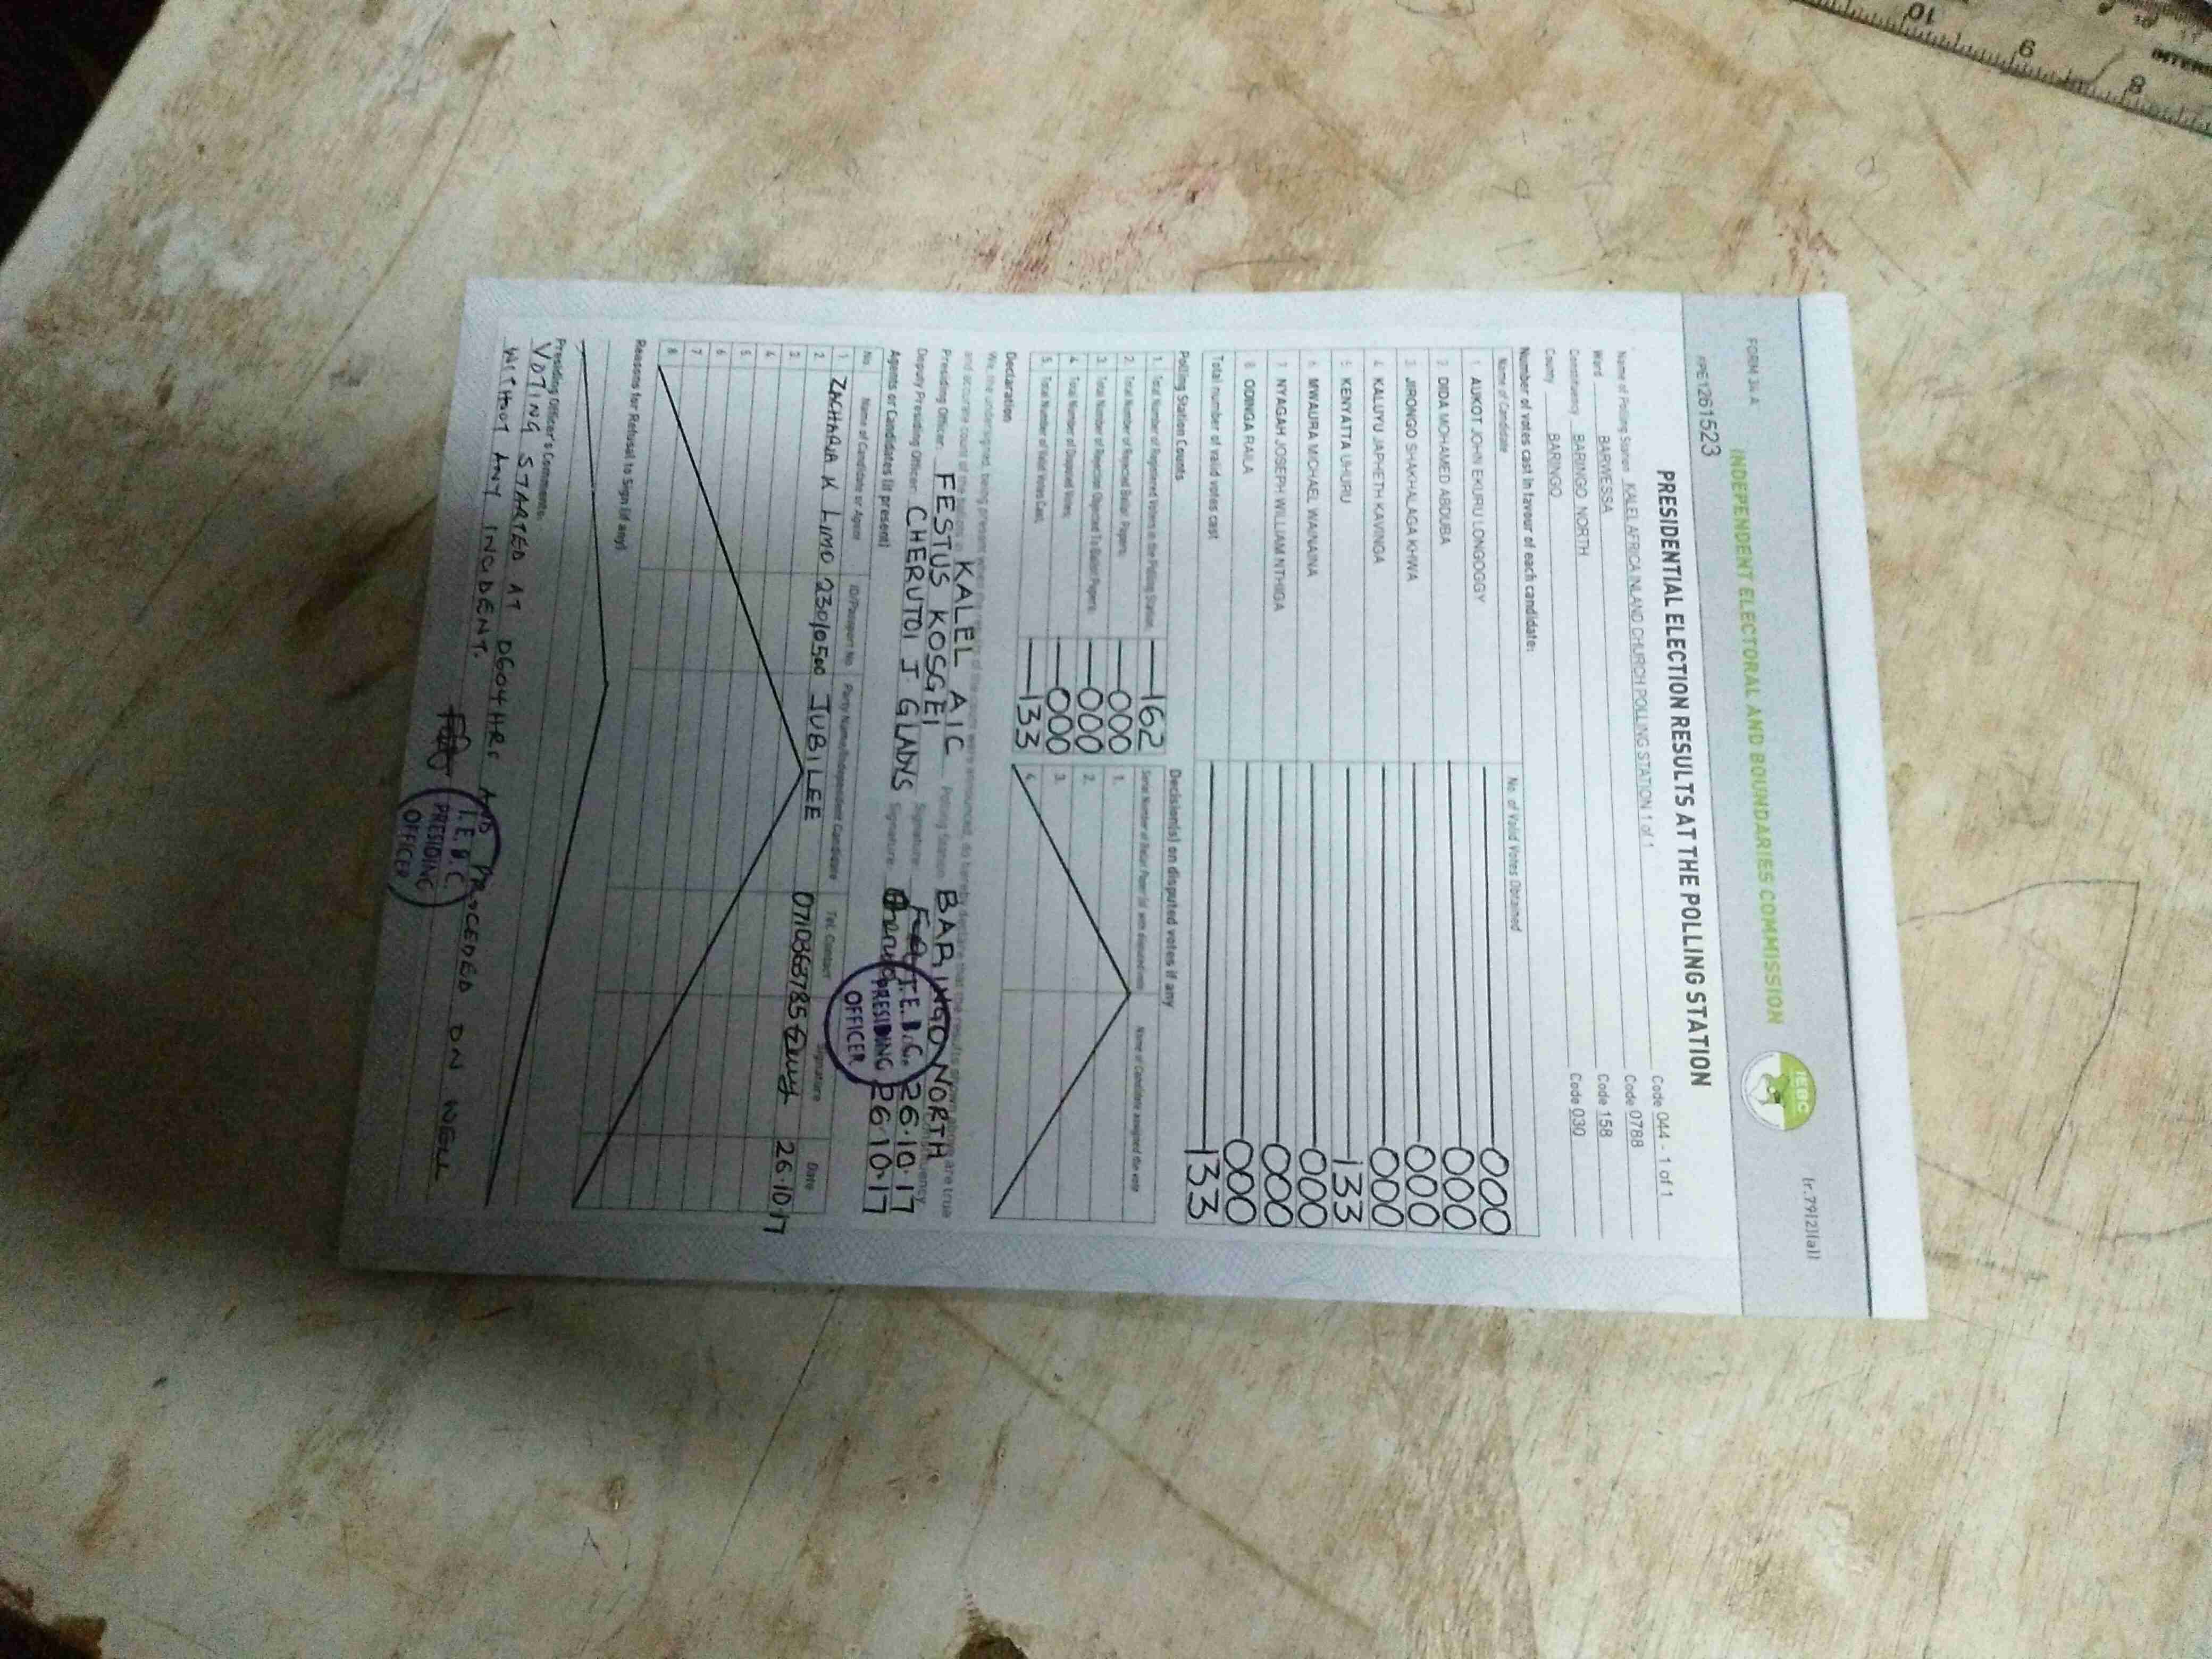 FORM 34 A
(r.79(2)(a))
INDEPENDENT ELECTORAL AND BOUNDARIES COMMISSION
IEBC
PPE1261523
PRESIDENTIAL ELECTION RESULTS AT THE POLLING STATION
Name of Polling Station KALEL AFRICA INLAND CHURCH POLLING STATION 1 of 1 Code 044 - 1 of 1
Ward BARWESSA Code 0788
Constituency BARINGO NORTH Code 158
County BARINGO Code 030
Number of votes cast in favour of each candidate:
Name of Candidate No. of Valid Votes Obtained
1 AUKOT JOHN EKURU LONGOGGY 000
2 DIDA MOHAMED ABDUBA 000
3 JIRONGO SHAKHALAGA KHWA 000
4 KALUYU JAPHETH KAVINGA 000
5 KENYATTA UHURU 133
6 MWAURA MICHAEL WAINAINA 000
7 NYAGAH JOSEPH WILLIAM NTHIGA 000
8 ODINGA RAILA 000
Total number of valid votes cast 133
Polling Station Counts Decision(s) on disputed votes if any
1. Total Number of Registered Voters in the Polling Station 162
2. Total Number of Rejected Ballot Papers 000
3. Total Number of Rejection Objected To Ballot Papers 000
4. Total Number of Disputed Votes 000
5. Total Number of Valid Votes Cast 133
Serial Number of Ballot Paper Name of Candidate assigned the vote
1.
2.
3.
4.
Declaration
We the undersigned, being present when the results of the count were announced, do hereby declare that the results shown above are true
and accurate count of the KALEL AIC Polling Station BARINGO NORTH Constituency
Presiding Officer: FESTUS KOSGEI Signature: 26.10.17
Deputy Presiding Officer: CHERUTOI J GLADYS Signature: 26.10.17
I.E.B.C. PRESIDING OFFICER
Agents or Candidates (if present)
No Name of Candidate or Agent ID/Passport No Party Name/Independent Candidate Tel. Contact Signature Date
1 ZACHARIA K LIMO 23010500 JUBILEE 0710363785 26.10.17
2
3
4
5
6
7
8
Reasons for Refusal to Sign (if any)
Presiding Officer's Comments:
VOTING STARTED AT 0604HRS AND PROCEDED ON WELL
WITHOUT ANY INCIDENT.
I.E.B.C. PRESIDING OFFICER
10
9
8